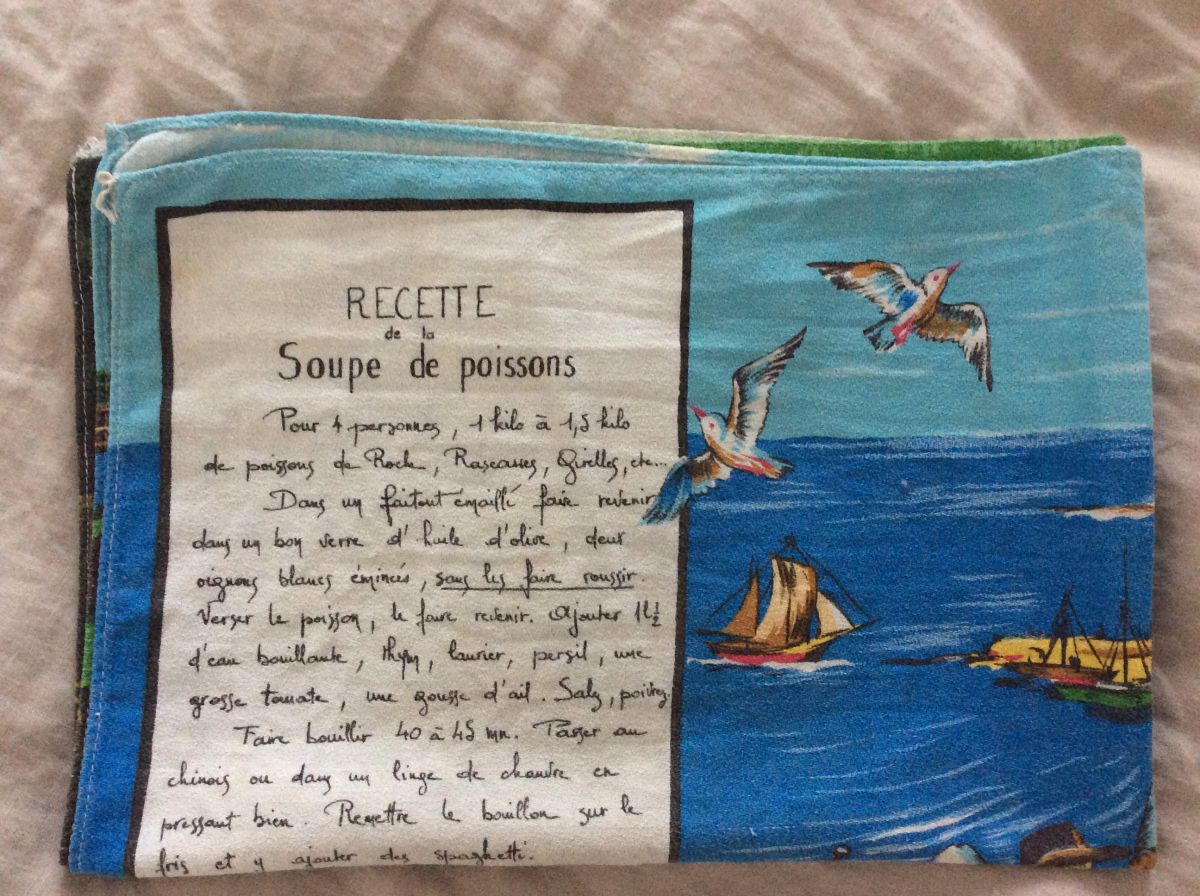 RECETTE
de la
Soupe de poissons
Pour 4 personnes, 1 kilo à 1,5 kilo
de poissons de Rock, Rascasses, Girelles, etc...
Dans un faitout émaillé faire revenir
dans un bon verre d'huile d'olive, deux
oignons blancs émincés, sans les faire roussir.
Verser le poisson, le faire revenir. Ajouter 1l½
d'eau bouillante, thym, laurier, persil, une
grosse tomate, une gousse d'ail. Salez, poivrez.
Faire bouillir 40 à 45 mn. Passer au
chinois ou dans un linge de chanvre en
pressant bien. Remettre le bouillon sur le
et y ajouter des spaghetti.